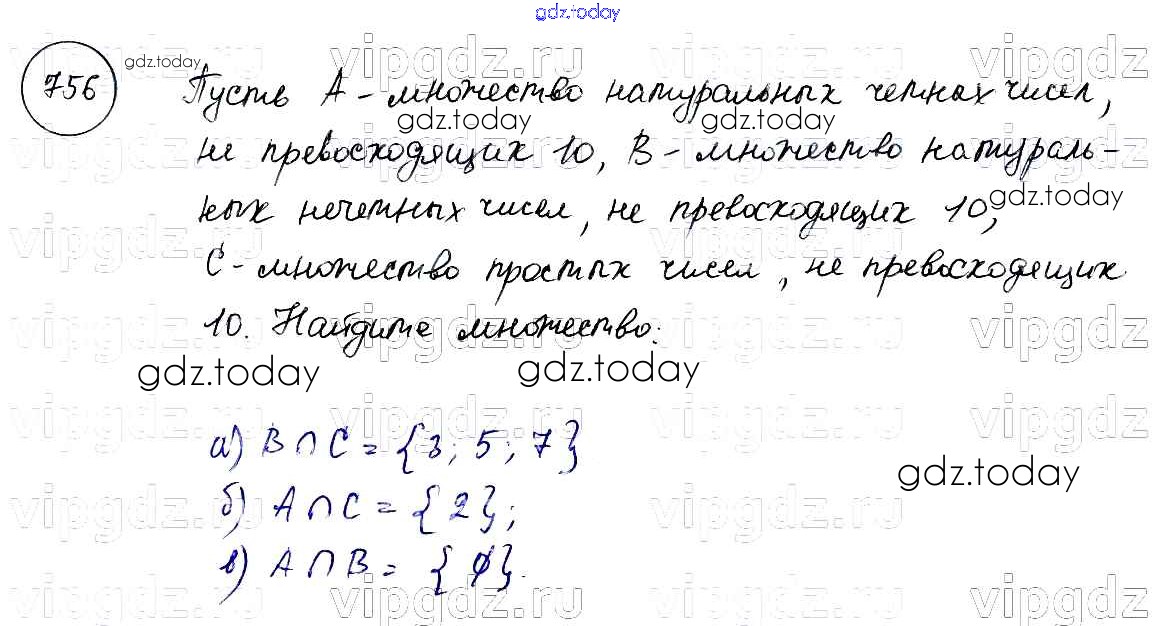 gdz.today
756 Пусть А - множество натуральных четных чисел,
не превосходящих 10, В - множество натураль-
ных нечетных чисел, не превосходящих 10,
С - множество простых чисел, не превосходящих
10. Найдите множество:
а) B ∩ C = {3; 5; 7}
б) A ∩ C = {2};
в) A ∩ B = {∅}.
gdz.today
gdz.today
gdz.today
gdz.today
gdz.today
gdz.today
gdz.today
vipgdz.ru
vipgdz.ru
vipgdz
vipgdz.ru
vipgdz.ru
vipgdz.ru
vipgdz.ru
vipgdz
vipgdz.ru
vipgdz.ru
vipgdz
vipgdz.ru
vipgdz.ru
vipgdz.ru
vipgdz.ru
vipgdz